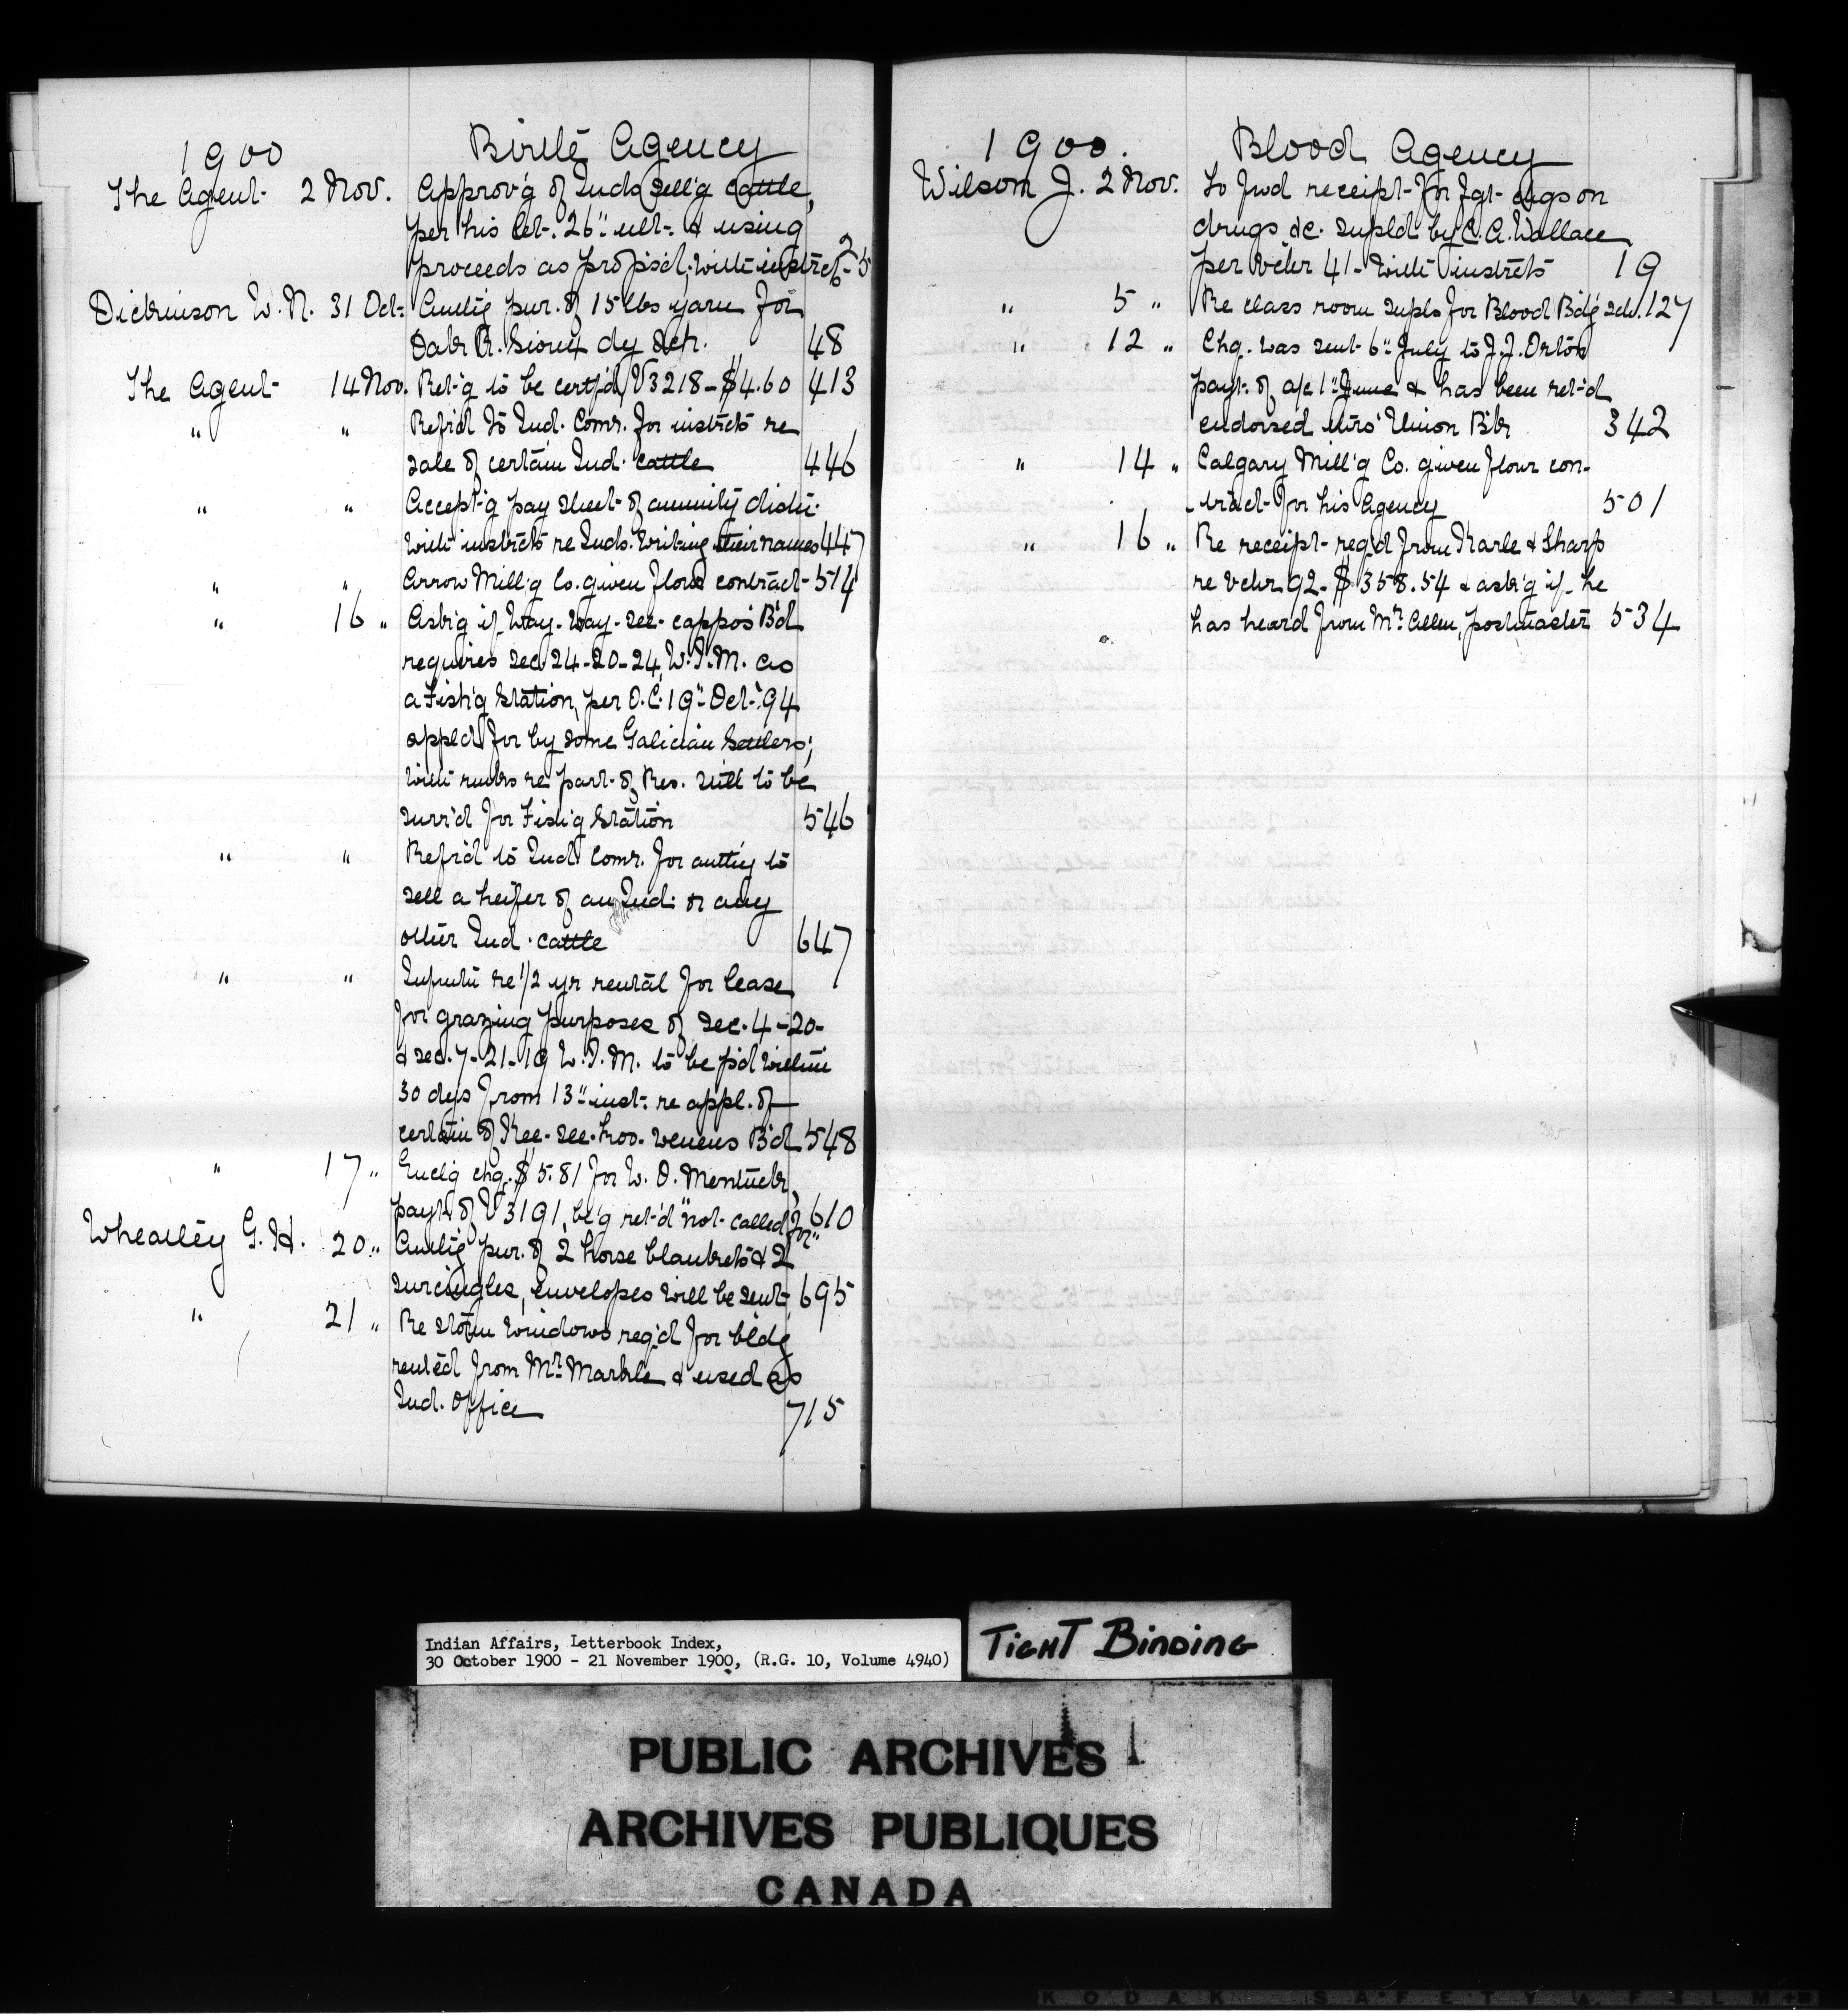 1900 Birtle Agency
The Agent 2 Nov. Approv'g of Inds sell'g cattle,
per his let. 26" ult. & using
proceeds as propos'd, with instrcts 25
Dickinson W. N. 31 Oct. Authg pur. of 15 lbs yarn for
Oak R. Sioux dy sch. 48
The Agent 14 Nov. Ret'g to be certf'd V3218 - $4.60 413
" " Refr'd to Ind. Comr. for instrcts re
sale of certain Ind. cattle 446
" " Accept'g pay sheet of annuity distr.
with instrcts re Inds. writing their names 447
" " Arrow Mill'g Co. given flour contract 514
" 16 " Ask'g if Way-way-see-cappo's B'd
requires sec. 24-20-24, W.I.M. as
a Fish'g Station, per O.C. 19" Oct. '94
appld for by some Galician settlers;
with rmks re part of Res. still to be
surv'd for Fish'g Station 546
" " Refr'd to Ind. Comr. for authy to
sell a heifer of an Ind. or any
other Ind. cattle 647
" " Infmtn re 1/2 yr rental for lease
for grazing purposes of sec. 4-20-
& sec. 7-21-19 W.I.M. to be p'd within
30 dys from 13" inst. re appl. of
certain of Kee-see-koo-wenens B'd 548
" 17 " Enclg chq. $5.81 for W. O. Mentuck,
payt of V3191, be'g ret'd "not called for" 610
Wheatley G. H. 20 " Authg pur. of 2 horse blankets & 2
surcingles, envelopes will be sent 695
" 21 " Re storm windows req'd for bldg
rented from Mr. Markle & used as
Ind. Office 715
1900. Blood Agency
Wilson J. 2 Nov. To fwd receipt for fgt chgs on
drugs &c. supld by C. A. Wallace
per vchr 41 - with instrcts 19
" 5 " Re class room supls for Blood Bdg sch. 127
" 12 " Chq. was sent 6" July to J. J. Orton
payt. of a/c 1" June & has been ret'd
endorsed thro' Union B'k 342
" 14 " Calgary Mill'g Co. given flour con-
tract for his Agency 501
" 16 " Re receipt req'd from Karle & Sharp
re vchr 92 - $358.54 & ask'g if he
has heard from Mr. Allen, postmaster 534
Indian Affairs, Letterbook Index,
30 October 1900 - 21 November 1900, (R.G. 10, Volume 4940)
TIGHT BINDING
PUBLIC ARCHIVES
ARCHIVES PUBLIQUES
CANADA
KODAK SAFETY FILM